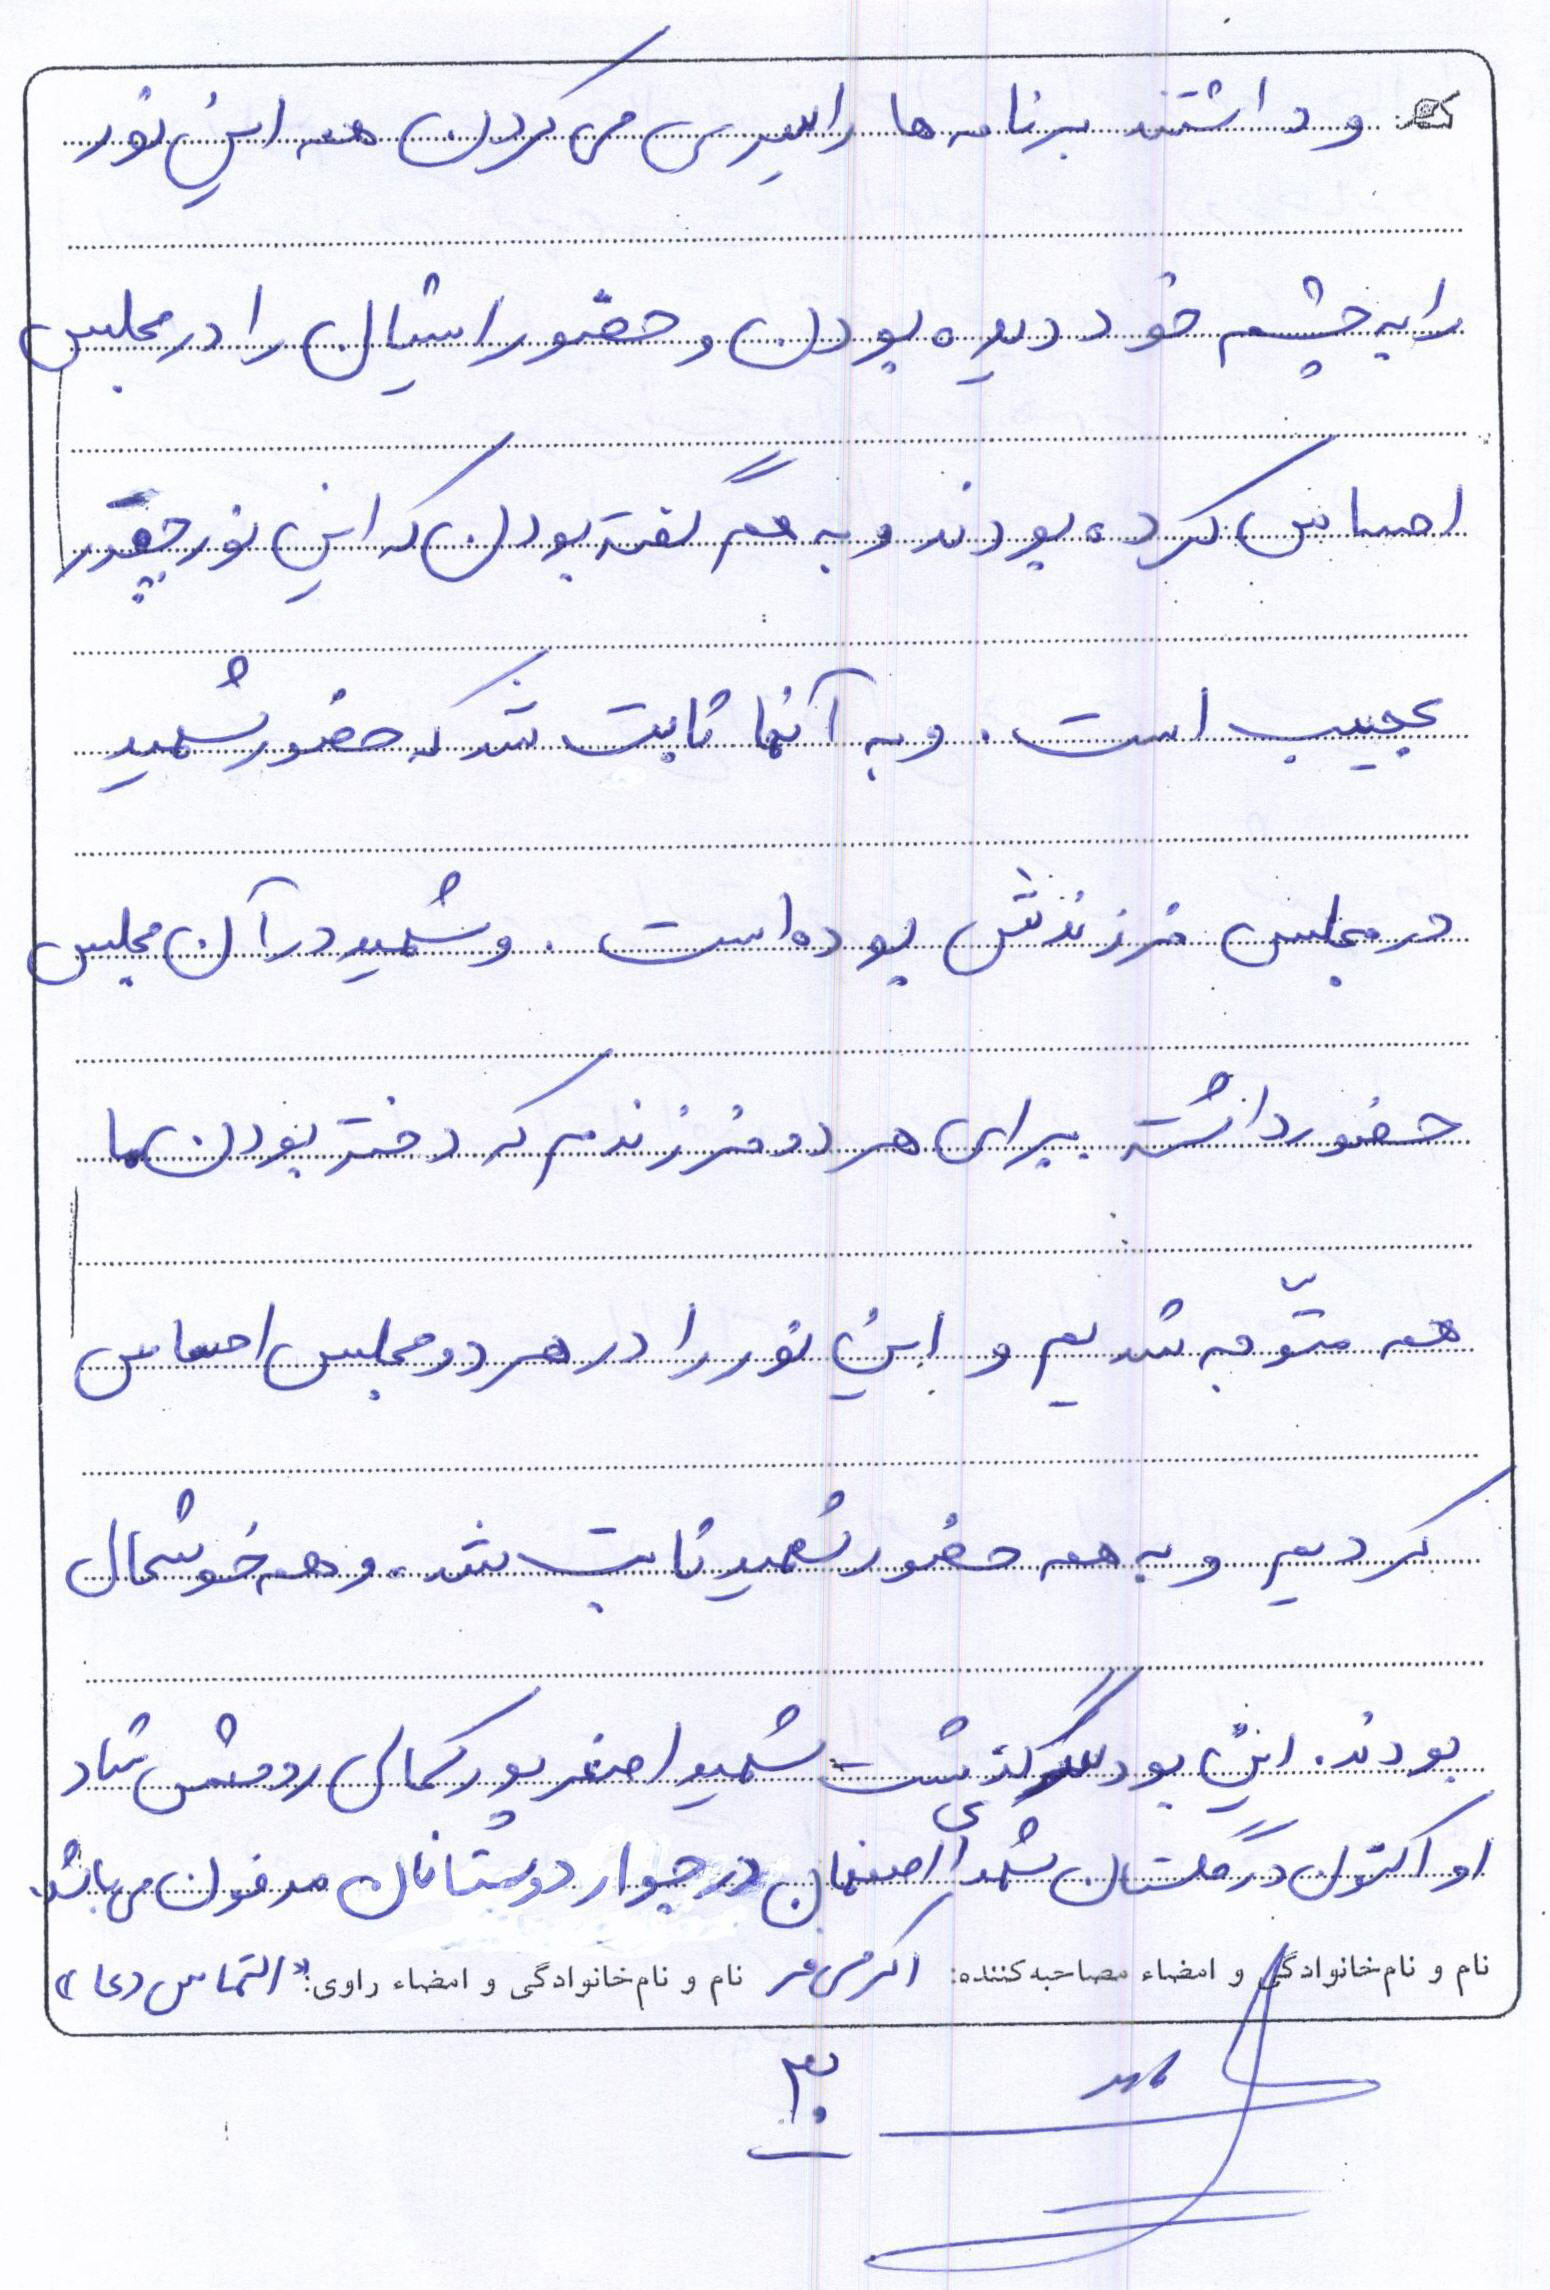 و داشتند برنامه ها را سپری می کردن همه این نور
را به چشم خود دیده بودن و حضور ایشان را در مجلس
احساس کرده بودند و به هم گفته بودن که این نور چقدر
عجیب است. و به آنها ثابت شد که حضور شهید
در مجلس فرزندش بوده است. و شهید در آن مجلس
حضور داشته برای هر دو فرزندم که دختر بودن ما
همه متوّجه شدیم و این نور را در هر دو مجلس احساس
کردیم و به همه حضور شهید ثابت شد. و همه خوشحال
بودند. این بود سرگذشت شهید اصغر پورکمالی روحش شاد
او اکنون در گلستان شهدای اصفهان در جوار دوستانش مدفون می باشد.
نام و نام‌خانوادگی و امضاء مصاحبه‌کننده: نام و نام‌خانوادگی و امضاء راوی: «التماس دعا»
۳۰